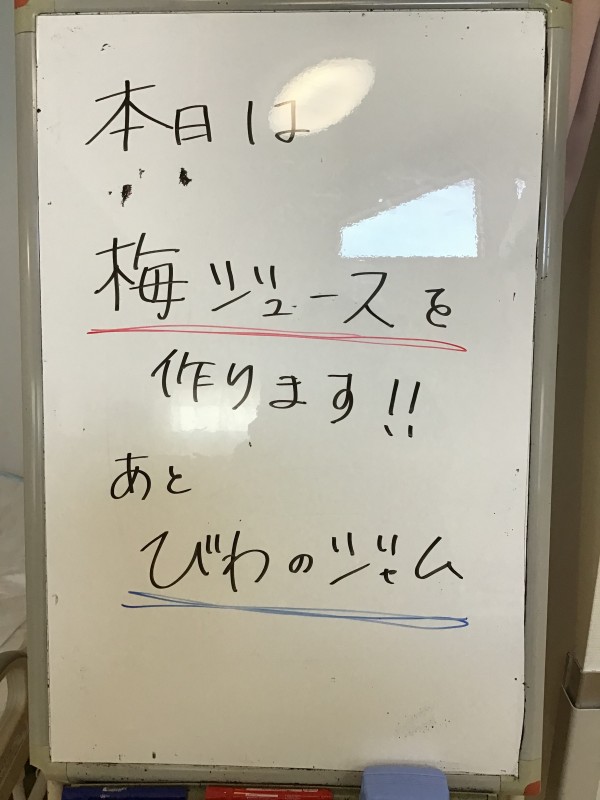 本日は
梅ジュースを
作ります!!
あと
びわのジャム